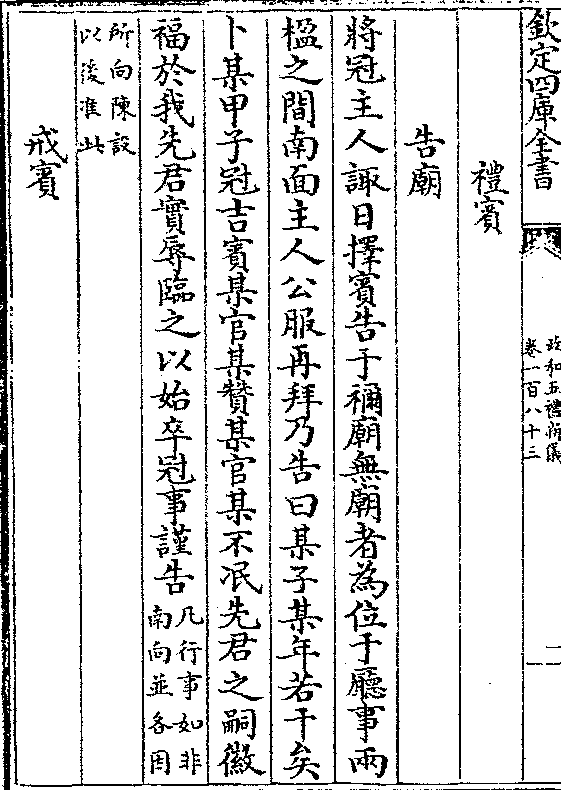 欽定四庫全書
政和五禮新儀
卷一百八十三
二
禮賓
告廟
將冠主人諏日擇賓告于禰廟無廟者為位于廳事兩
楹之間南面主人公服再拜乃告曰某子某年若干矣
卜某甲子冠吉賓某官某贊某官某不泯先君之嗣徽
福於我先君實辱臨之以始卒冠事謹告凡行事如非
南向並各因
所向陳設
以後准此
戒賓